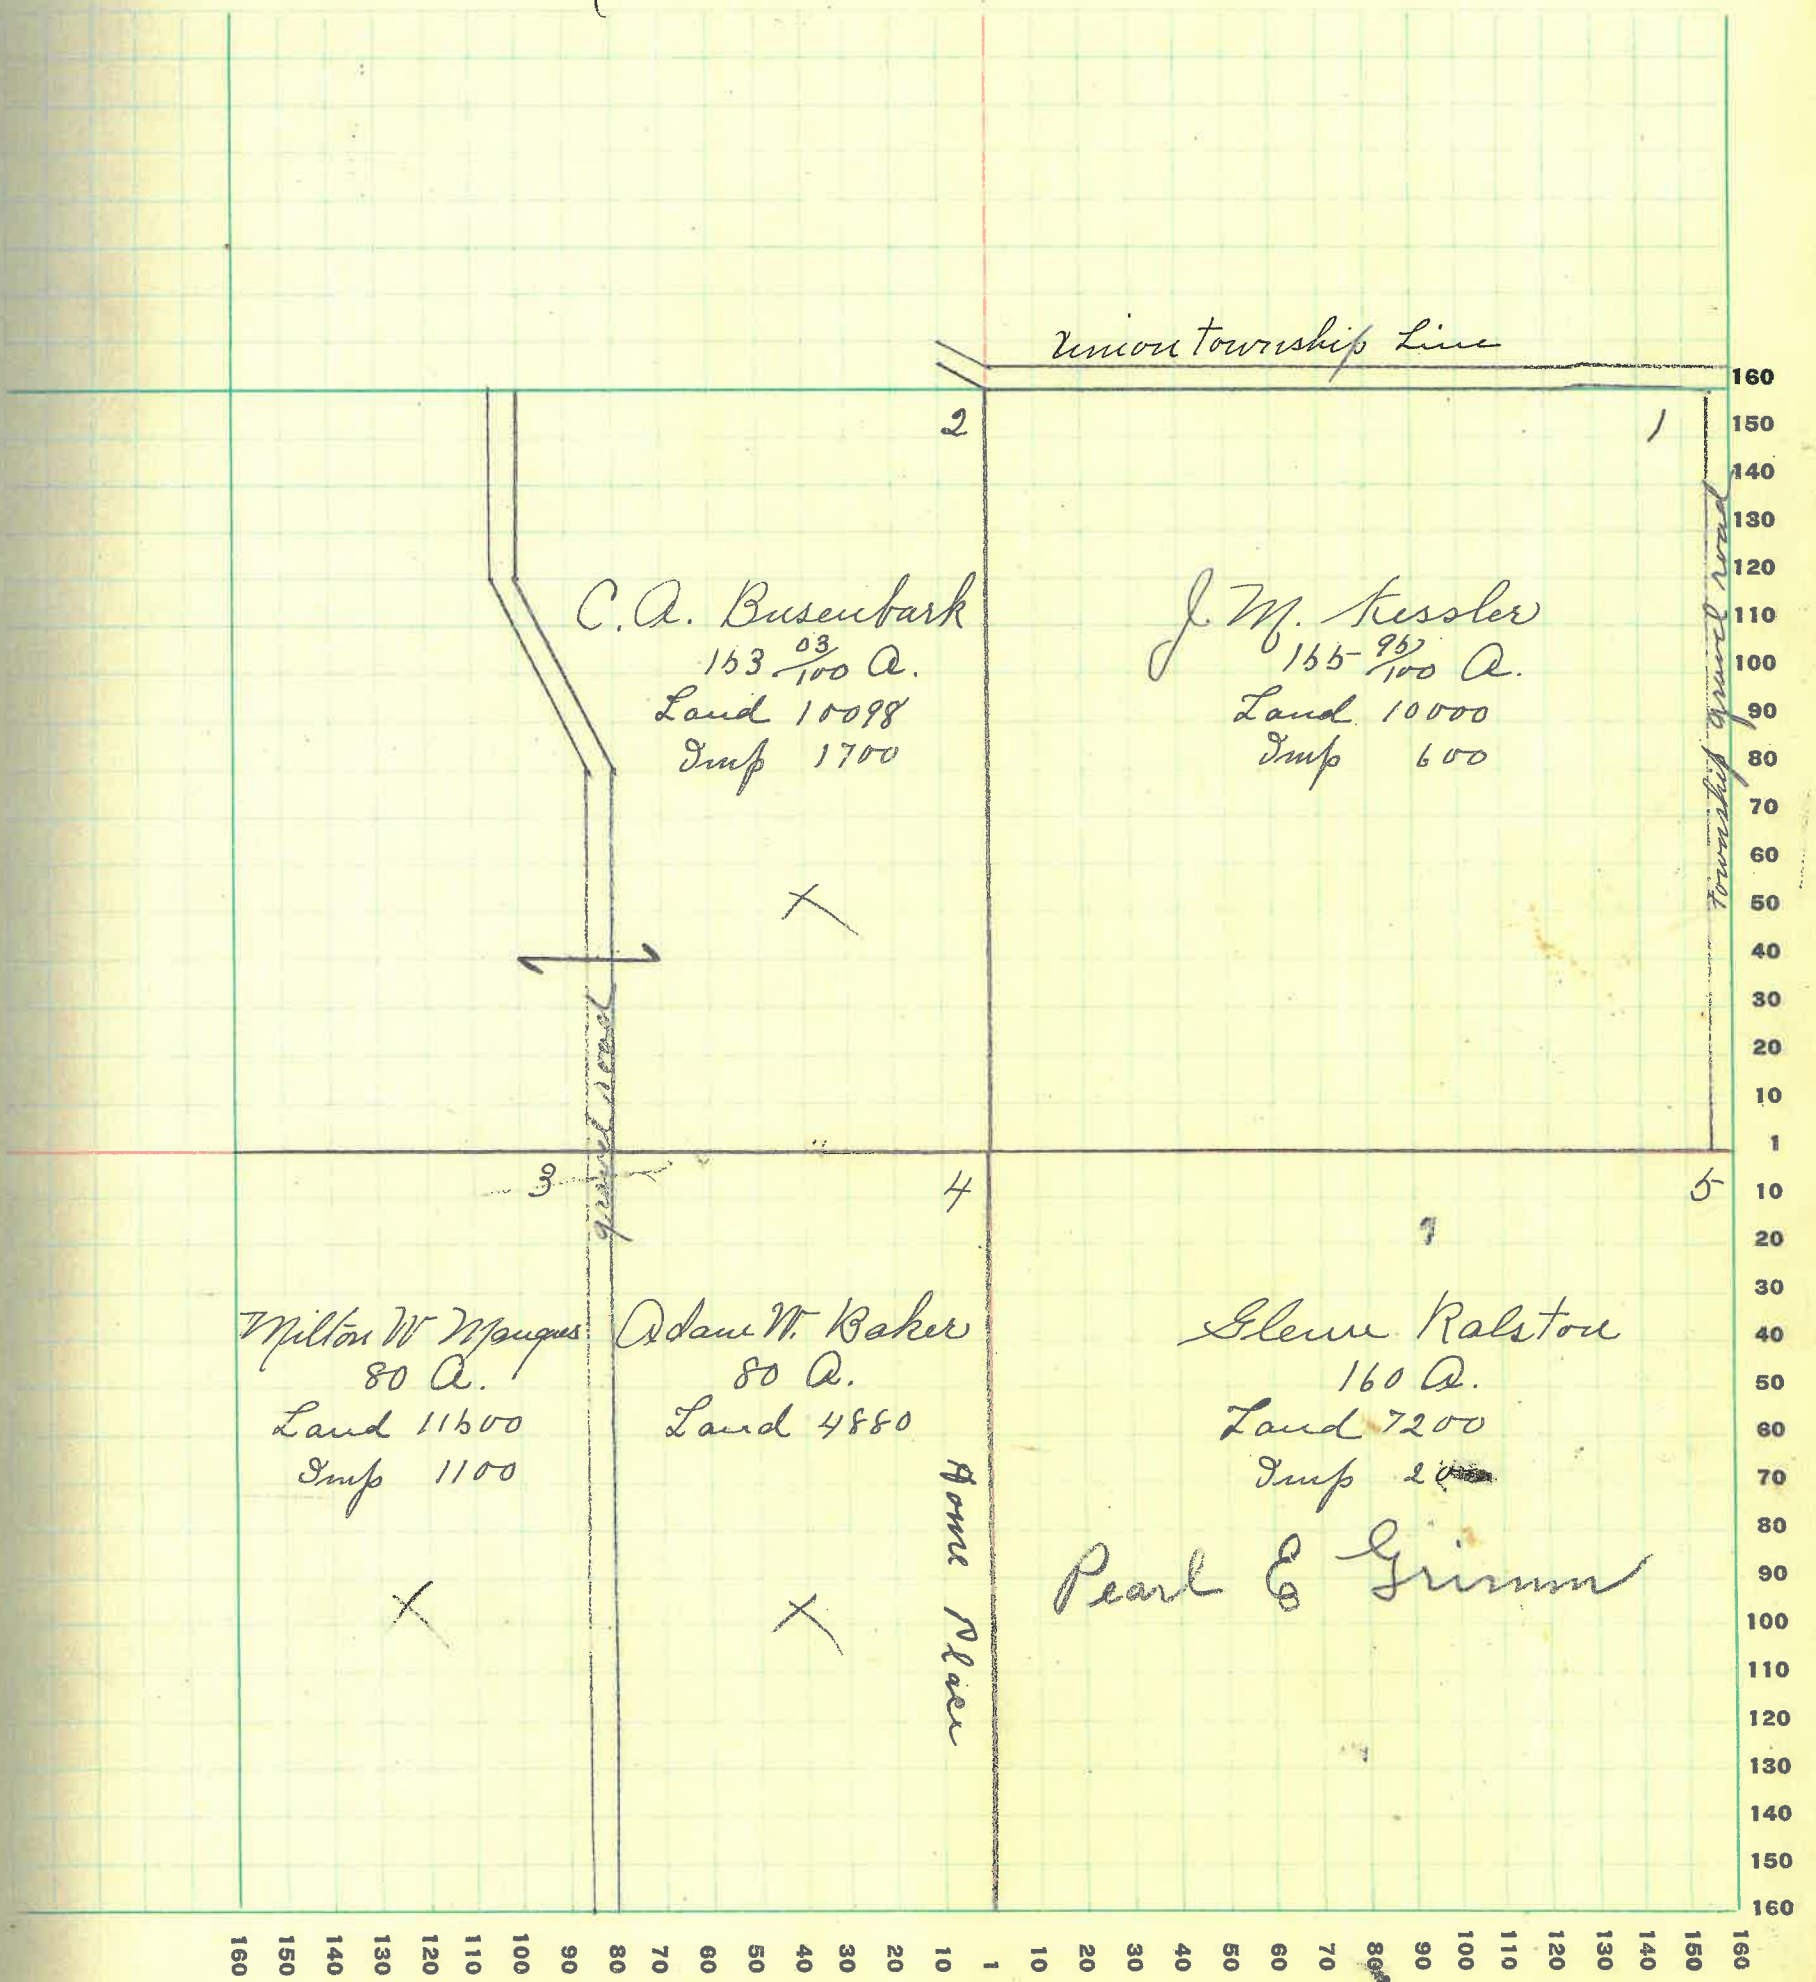 Union Township Line
2
1
C. A. Busenbark
153 03/100 A.
Land 10098
Imp 1700
J. M. Kessler
155 95/100 A.
Land 10000
Imp 600
Township gravel road
gravel road
3
4
5
Milton W
80 A.
Land 11500
Imp 1100
Adam W. Baker
80 A.
Land 4880
Home Place
Glenn Ralston
160 A.
Land 7200
Imp
Pearl E Grimm
160
150
140
130
120
110
100
90
80
70
60
50
40
30
20
10
1
10
20
30
40
50
60
70
80
90
100
110
120
130
140
150
160
160 150 140 130 120 110 100 90 80 70 60 50 40 30 20 10 1 10 20 30 40 50 60 70 80 90 100 110 120 130 140 150 160